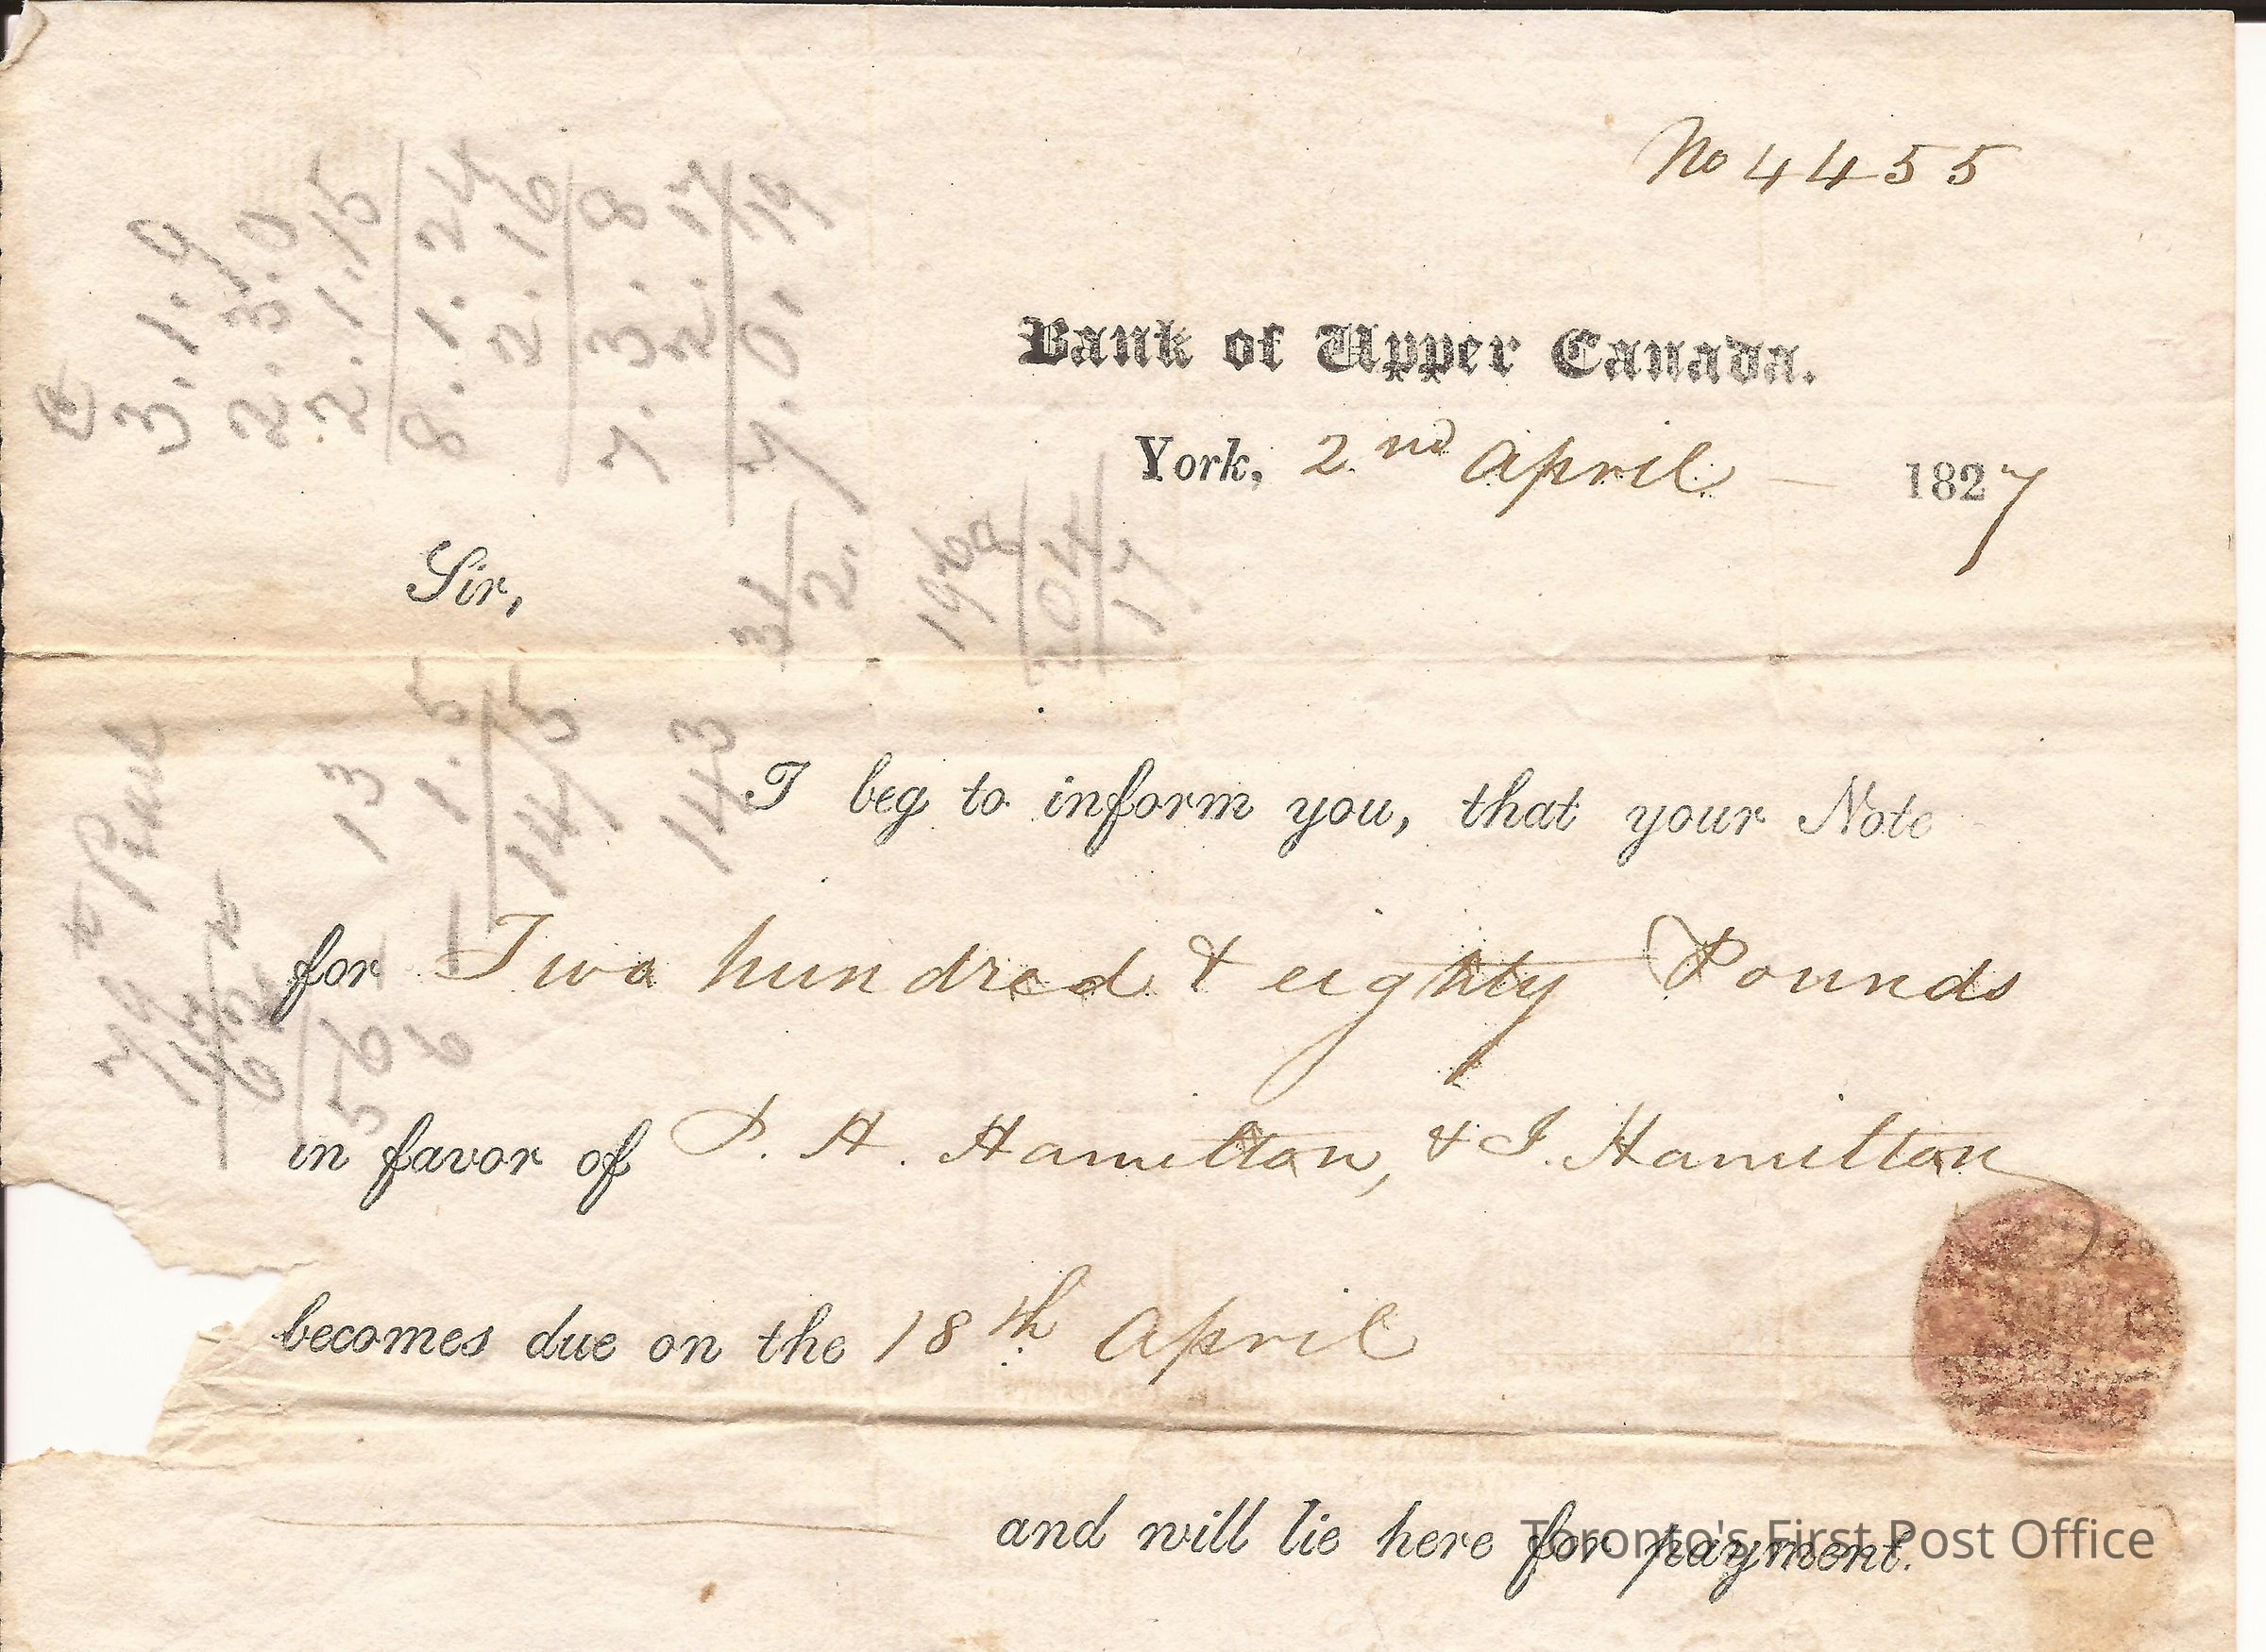 No 4455
Bank of Upper Canada.
York, 2nd April 1827
Sir,
I beg to inform you, that your Note
for Two hundred & eighty Pounds
in favor of H. Hamilton, & J. Hamilton
becomes due on the 18th April
and will lie here for payment.
Toronto's First Post Office
3.1.9
2.3.0
2.1.15
8.1.24
2.16
7.3.8
2.
7.0.19
3/2
204
17
13
1.5
14/5
143